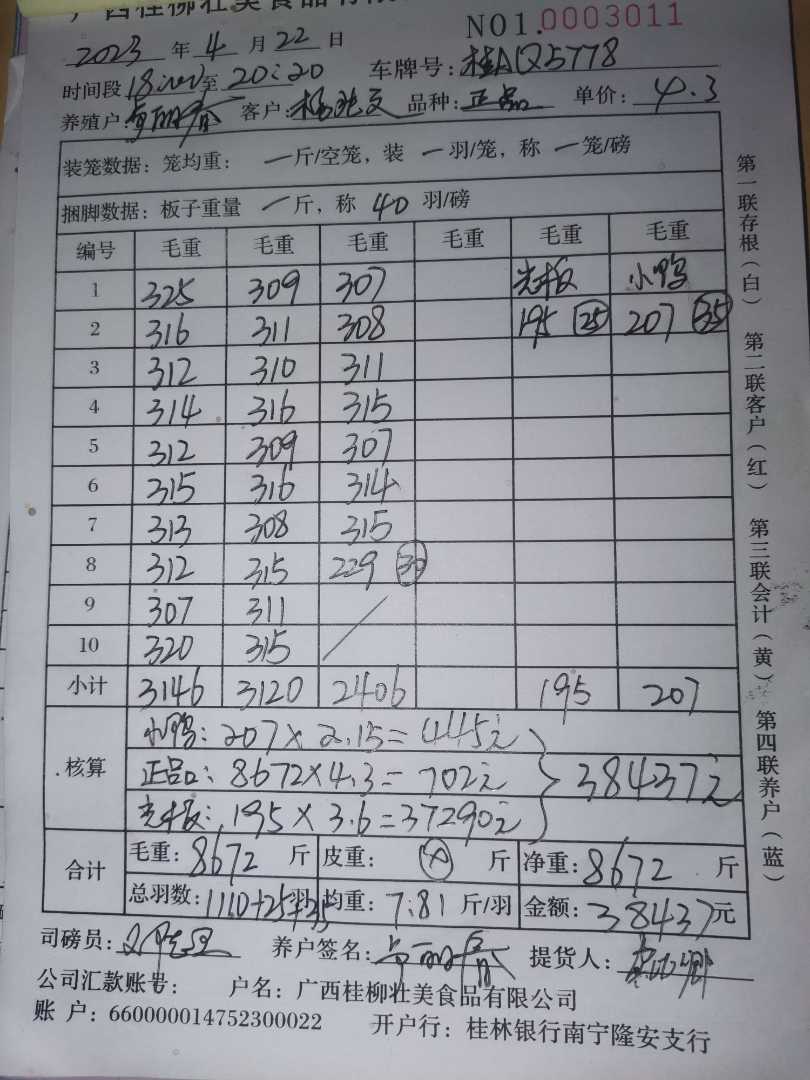 广西桂柳壮美食品有限
NO1.0003011
2023 年 4 月 22 日
时间段 18:00 至 20:20 车牌号: 桂AQ5778
养殖户: 客户: 品种: 正品 单价: 4.3
装笼数据: 笼均重: 一 斤/空笼, 装 一 羽/笼, 称 一 笼/磅
捆脚数据: 板子重量 一 斤, 称 40 羽/磅
编号 毛重 毛重 毛重 毛重 毛重 毛重
1 325 309 307 光板 小鸭
2 316 311 308 195 25 207 35
3 312 310 311
4 314 316 315
5 312 309 307
6 315 316 314
7 313 308 315
8 312 315 229 30
9 307 311 /
10 320 315
小计 3146 3120 2406 195 207
核算
小鸭: 207×2.15=445元
正品: 8672×4.3=702元
光板: 195×3.6=37290元
38437元
合计
毛重: 8672 斤 皮重: 斤 净重: 8672 斤
总羽数: 1110+25+35 羽 均重: 7.81 斤/羽 金额: 38437 元
司磅员: 养户签名: 提货人:
公司汇款账号: 户名: 广西桂柳壮美食品有限公司
账 户: 660000014752300022 开户行: 桂林银行南宁隆安支行
第一联存根(白) 第二联客户(红) 第三联会计(黄) 第四联养户(蓝)